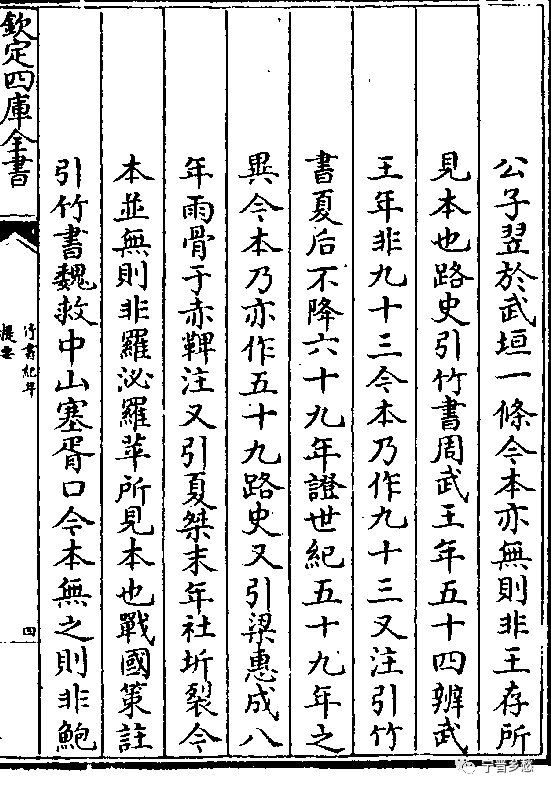 公子翌於武垣一條今本亦無則非王存所
見本也路史引竹書周武王年五十四辨武
王年非九十三今本乃作九十三又注引竹
書夏后不降六十九年證世紀五十九年之
異今本乃亦作五十九路史又引梁惠成八
年雨骨于赤鞞注又引夏桀末年社坼裂今
本並無則非羅泌羅苹所見本也戰國策註
引竹書魏救中山塞胥口今本無之則非鮑
欽定四庫全書
竹書紀年
提要
四
宁晋乡愁